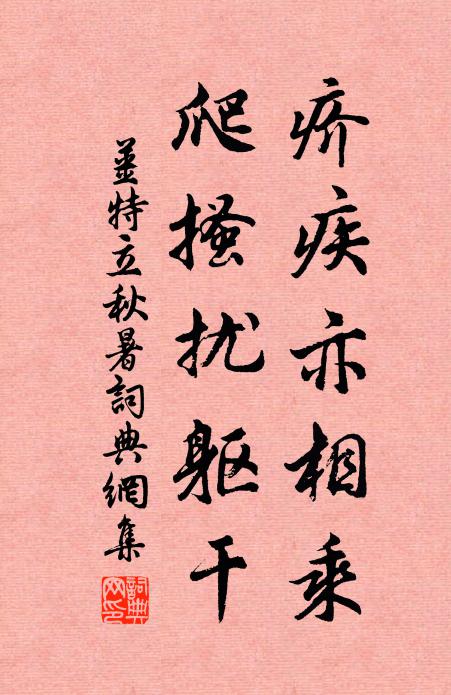 疥疾亦相乘
爬搔扰躯干
姜特立秋暑詞典網集
詞典网印